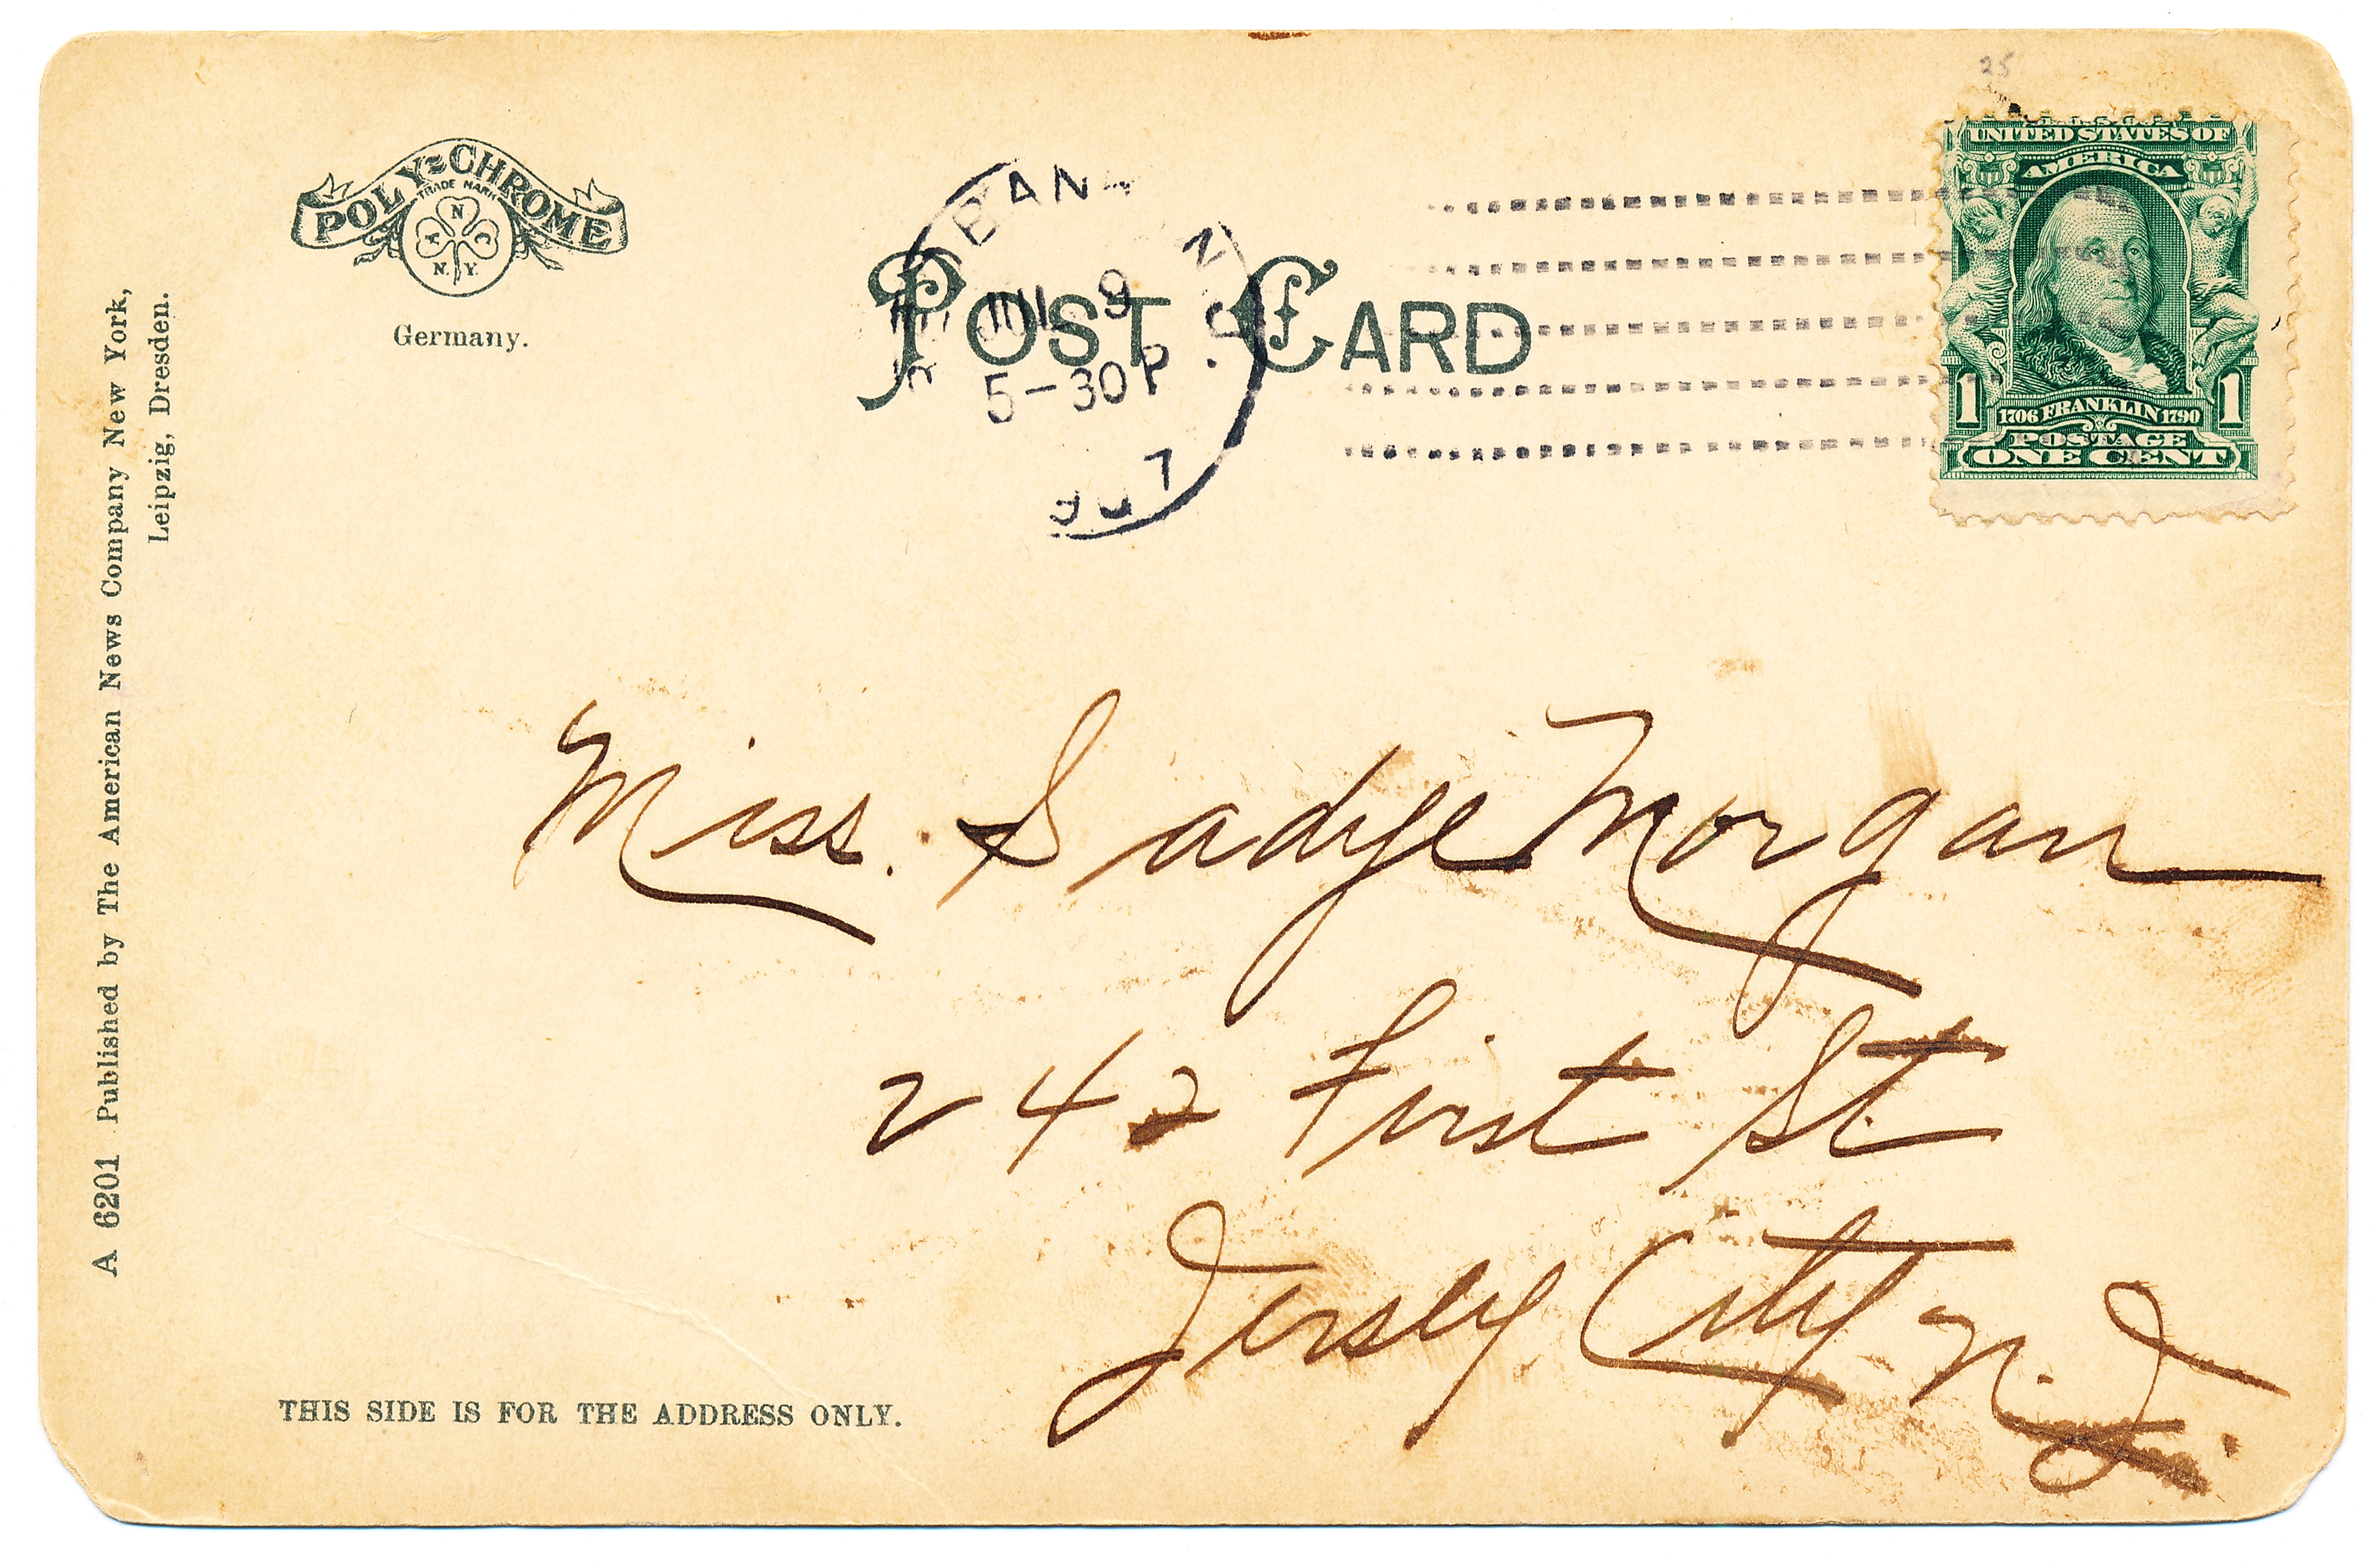 25
POLY-CHROME
TRADE MARK
A N C
N. Y.
Germany.
POST CARD
BANK
N.J.
JUL 9
5-30 P
UNITED STATES OF
AMERICA
1 1706 FRANKLIN 1790 1
POSTAGE
ONE CENT
A 6201 Published by The American News Company New York,
Leipzig, Dresden.
Miss. Sadye Morgan
242 First St
Jersey City N.J.
THIS SIDE IS FOR THE ADDRESS ONLY.